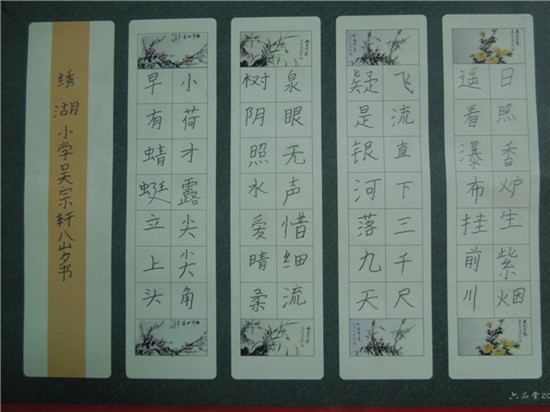 日照香炉生紫烟
遥看瀑布挂前川
飞流直下三千尺
疑是银河落九天
泉眼无声惜细流
树阴照水爱晴柔
小荷才露尖尖角
早有蜻蜓立上头
绣湖小学吴宗轩八岁书